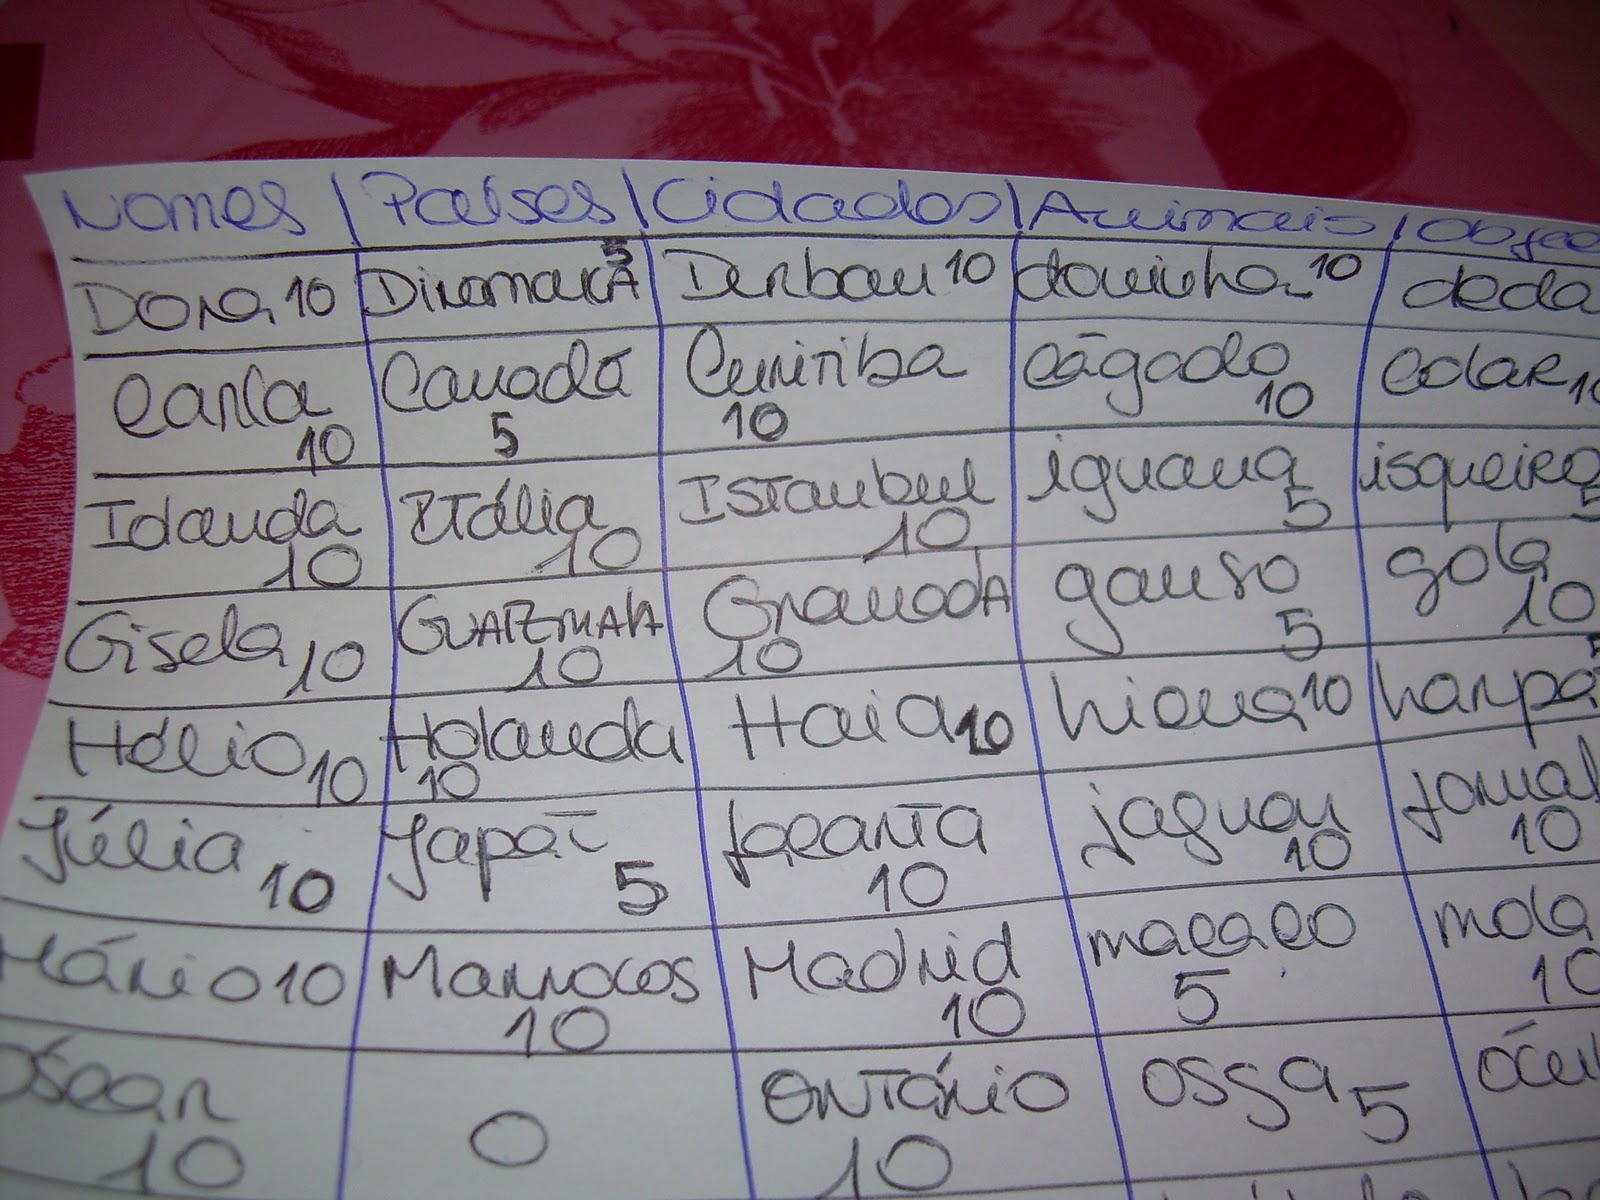 Nomes | Países | Cidades | Animais | Objec
Dora 10 Dinamarca 5 Durban 10 doninha 10 deda
Carla 10 Canadá 5 Curitiba 10 cágado 10 colar 10
Idanda 10 Itália 10 Istanbul 10 iguana 5 isqueiro 5
Gisela 10 Guatemala 10 Granada 10 ganso 5 gola 10
Hélio 10 Holanda 10 Haia 10 hiena 10 harpa 5
Júlia 10 Japão 5 Jacarta 10 jaguar 10 jornal 10
Mário 10 Marrocos 10 Madrid 10 macaco 5 mola 10
Óscar 10 0 Ontário 10 ossga 5 ócul